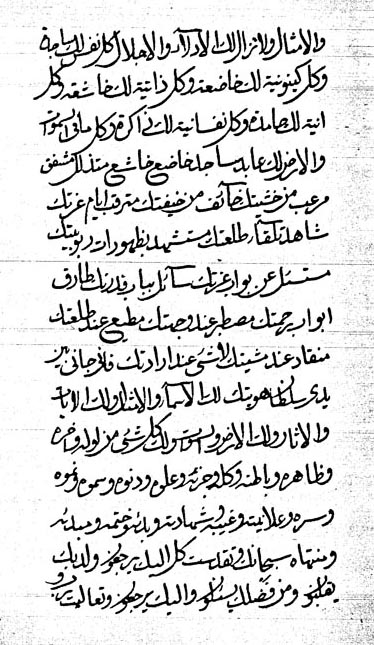 والامثال ولا نزال لك الاداء والاجلال كل نفس لك ساجدة
وكل كينونية لك خاضعة وكل ذاتية لك خاشعة وكل
انية لك حامدة وكل نفسانية لك ذاكرة وكل ما في السموات
والارض لك عابد ساجد خاضع خاشع متذلل مشفق
مرعب من خشيتك خائف من خيفتك مترقب ايام عزتك
شاهد تلقاء طلعتك مستشهد بظهورات ربوبيتك
عن بوارغزتك سائل بباب قدرتك طارق
ابواب رحمتك مضطر عند وجهتك مطيع عند طلعتك
منقاد عند مشيتك لا شيء عند ارادتك فاني بين
يدي سلطان هويتك لك الاسماء والامثال ولك الايات
والاثار ولك الارض والسموات ولك كل شيء من اوله واخره
وظاهره وباطنه وكله وجزئه وعلوه ودنوه وسموه ونموه
وسره وعلانيته وغيبه وشهادته وبدئه وختمه ومبدئه
ومنتهاه سبحانك وتقدست كل اليك يرجعون ولديك
ومن فضلك يسئلون واليك يرجعون وتعاليت